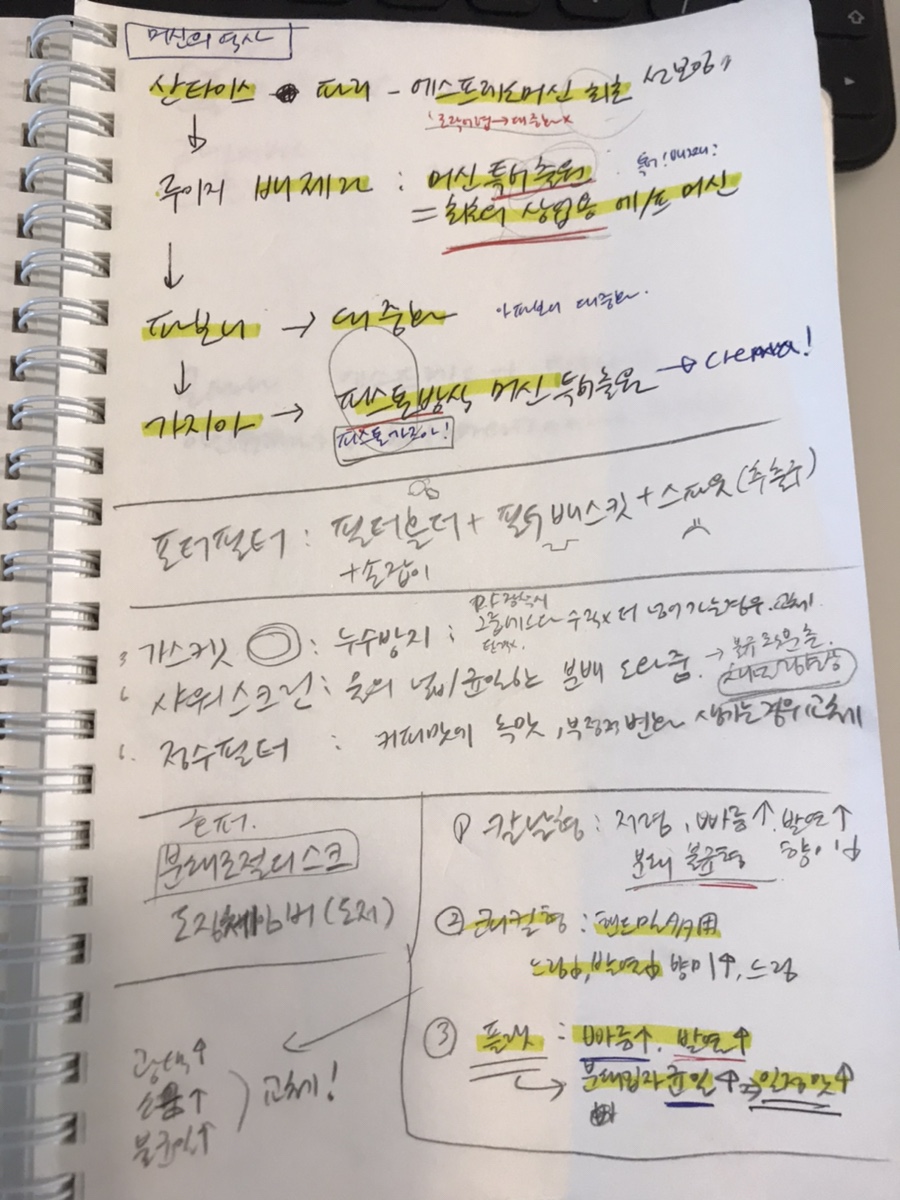 머신의 역사
산타이스 파리 - 에스프레소머신 최초 선보임
→ 대중화 x
루이지 배제라 : 머신 특허출원 특허! 배제라!
= 최초의 상업용 에/프 머신
파보니 → 대중화 아파보니 대중화.
가지아 → 피스톤방식 머신 특허출원 → crema!
피스톤가지아!
포터필터 : 필터홀더 + 필터 배스킷 + 스파웃 (추출구)
+ 손잡이
3 가스켓 : 누수방지 : 수직x 더 넘어가는경우. 교체
6 샤워스크린 : 물의 넓이 균일하는 분배 도와줌. →
6. 정수필터 : 커피맛에 녹맛, 부정적 변화 생기는경우 교체
호퍼.
분쇄조절디스크
도징체임버 (도저)
① 칼날형 : 저렴, 빠름↑ 발열↑
분쇄 불균형 향미↓
② 코니컬형 : 핸드밀 사용用
느림, 발열↓ 향미↑, 느림
③ 플랫 : 빠름↑. 발열↑
분쇄입자 균일↑ ⇒ 일정맛↑
광택↑
소음↑ 교체!
불균일↑